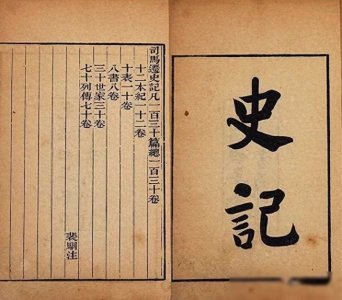 史記
司馬遷史記凡一百三十篇總一百三十卷
十二本紀一十二卷
十表一十卷
八書八卷
三十世家三十卷
七十列傳七十卷
裴駰注